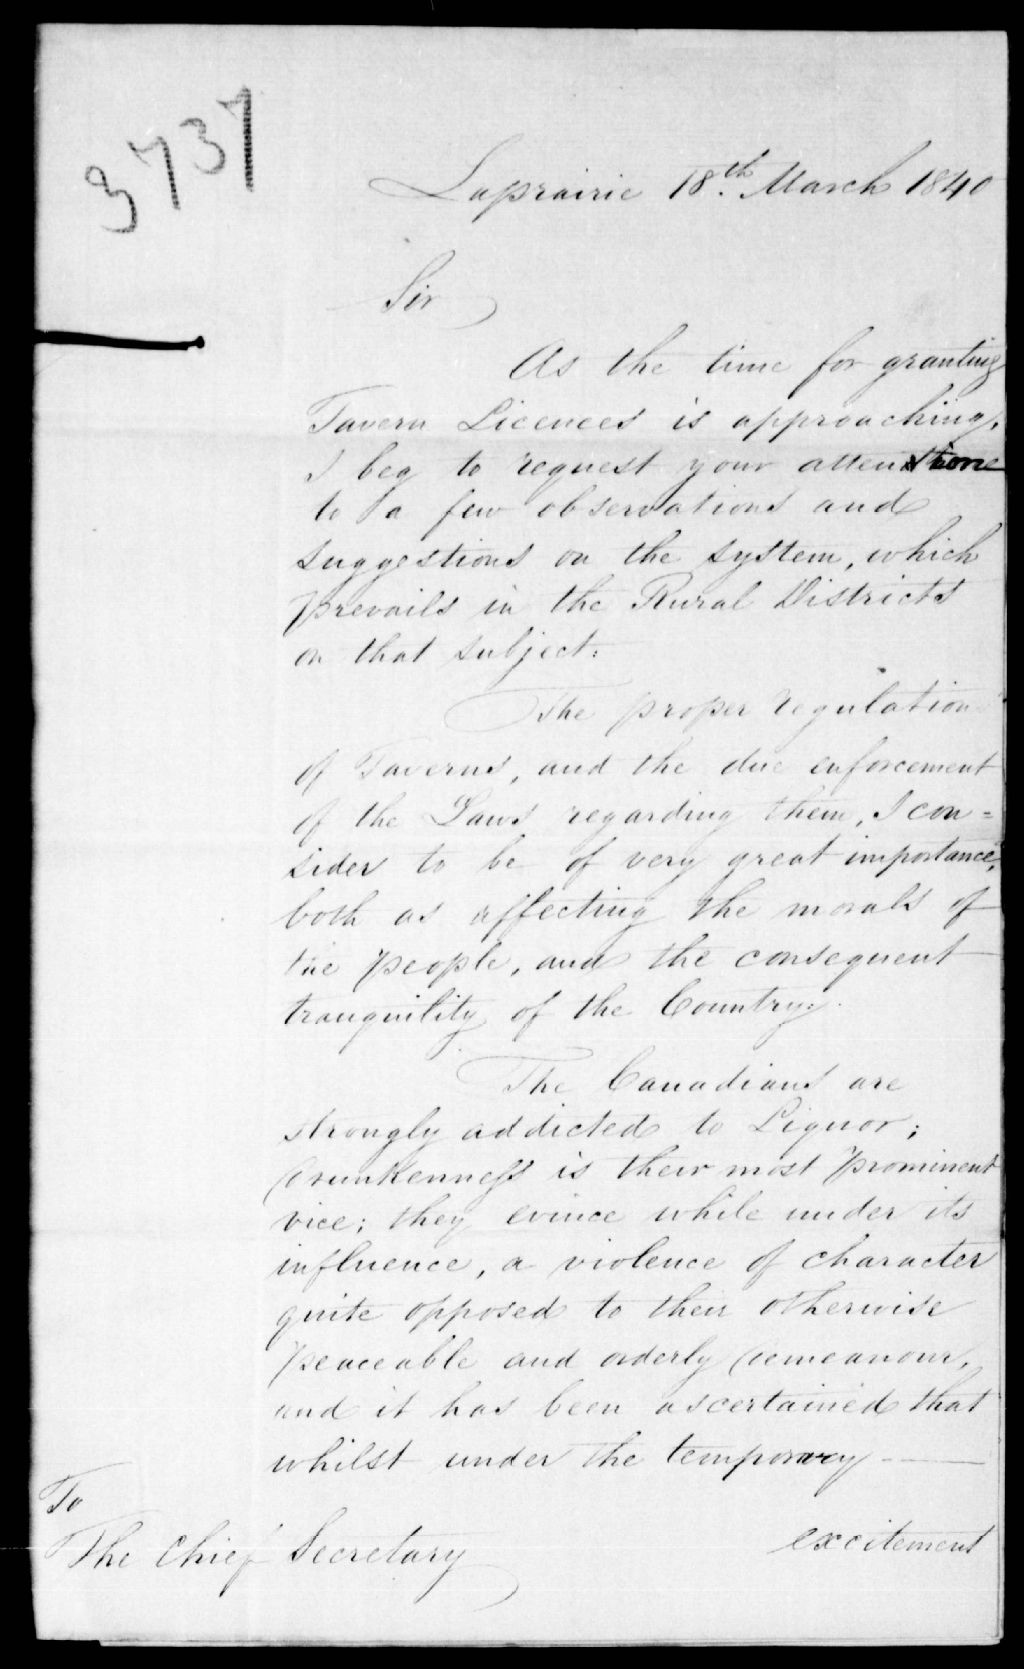 3737
Laprairie 18.th March 1840
Sir
As the time for granting
Tavern Licences is approaching,
I beg to request your attention
to a few observations and
suggestions on the system, which
prevails in the Rural Districts
on that subject.
The proper regulation
of Taverns, and the due enforcement
of the Laws regarding them, I con=
sider to be of very great importance,
both as affecting the morals of
the people, and the consequent
tranquility of the Country.
The Canadians are
strongly addicted to Liquor;
drunkenness is their most prominent
vice; they evince while under its
influence, a violence of character
quite opposed to their otherwise
peaceable and orderly demeanour,
and it has been ascertained that
whilst under the temporary
excitement
To
The Chief Secretary